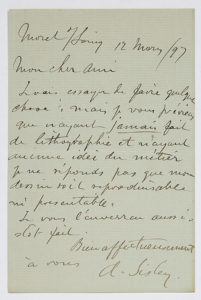 Moret s/Loing 12 Mars/97
Mon cher ami
Je vais essayer de faire quelque
chose; mais je vous préviens
que n'ayant jamais fait
de lithographie et n'ayant
aucune idée du métier
je ne réponds pas que mon
dessin soit reproduisable
ni présentable.
Je vous l'enverrai aussi-
tôt fait.
Bien affectueusement
à vous A. Sisley